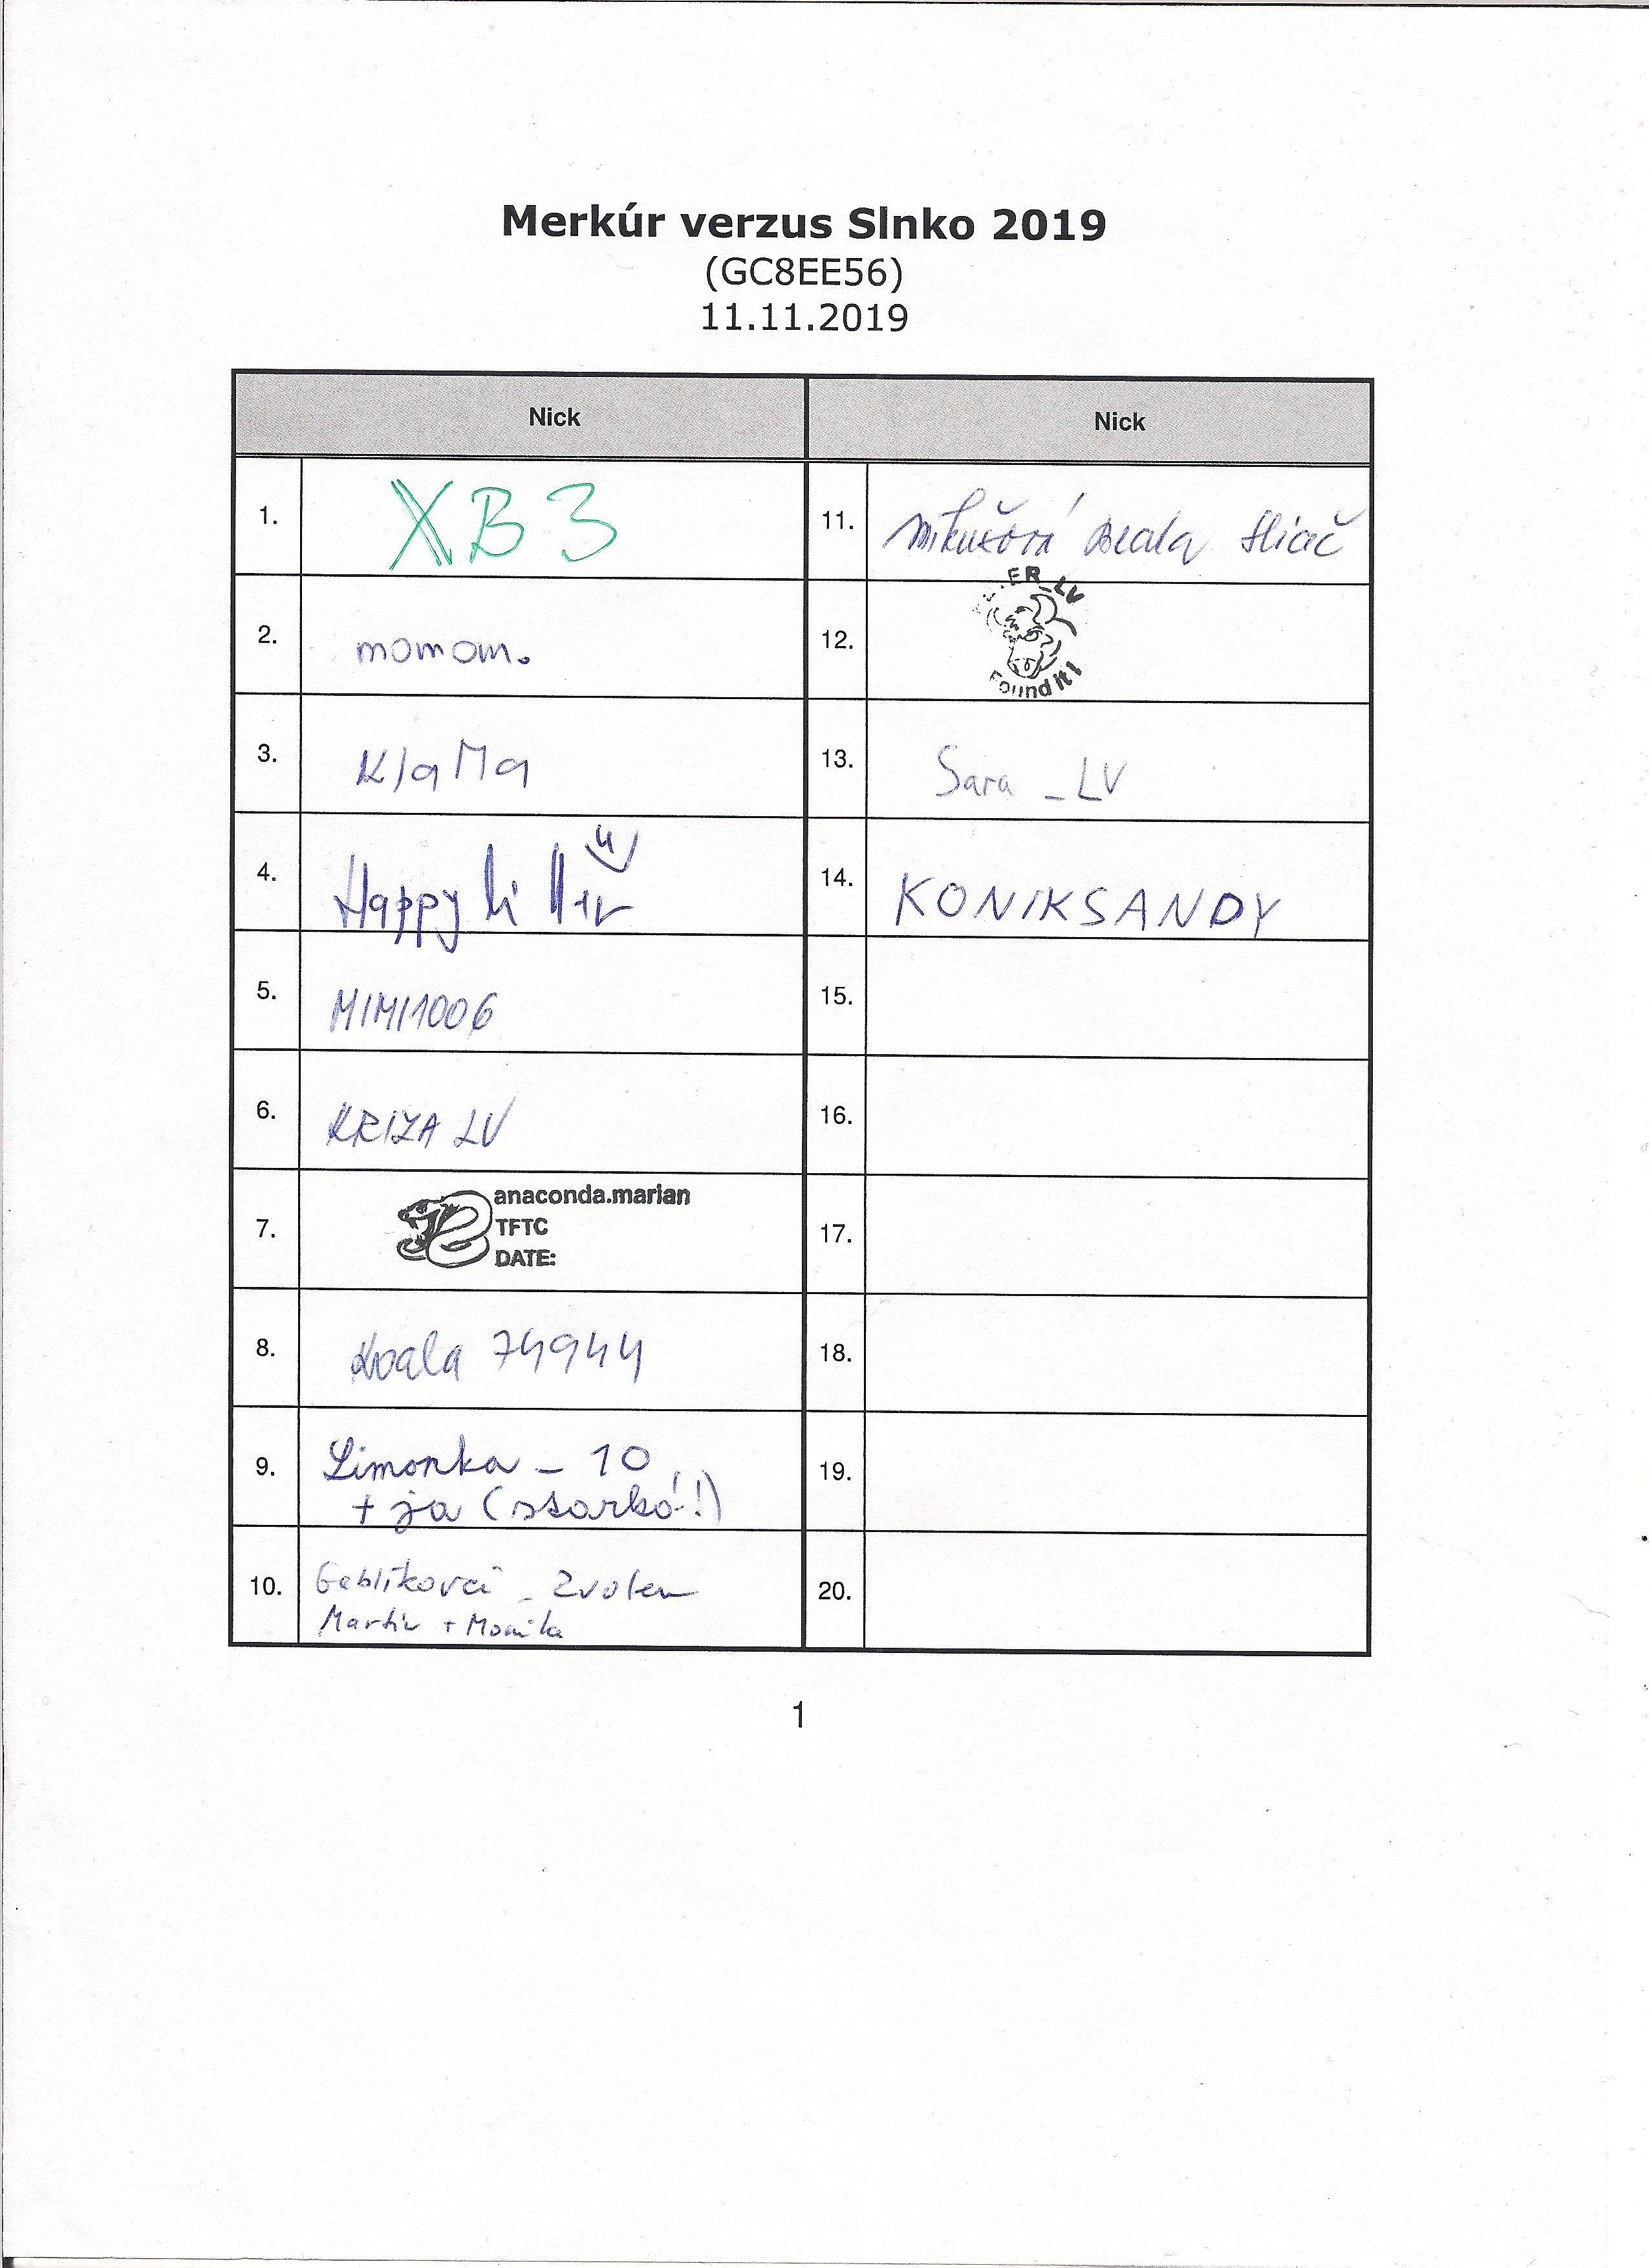 Merkúr verzus Slnko 2019
(GC8EE56)
11.11.2019
Nick
1. XB3
2. momom.
3. KlaMa
4. Happy
5. MIMI1006
6. KRIZA LV
7. anaconda.marian
TFTC
DATE:
8. Koala 74944
9. Limonka - 10
+ ja (starká!)
10. Gablíkovci - Zvolen
Martin + Monika
Nick
11. Beata Sliač
12. ER_LV
Found it!
13. Sara _LV
14. KONIKSANDY
15.
16.
17.
18.
19.
20.
1